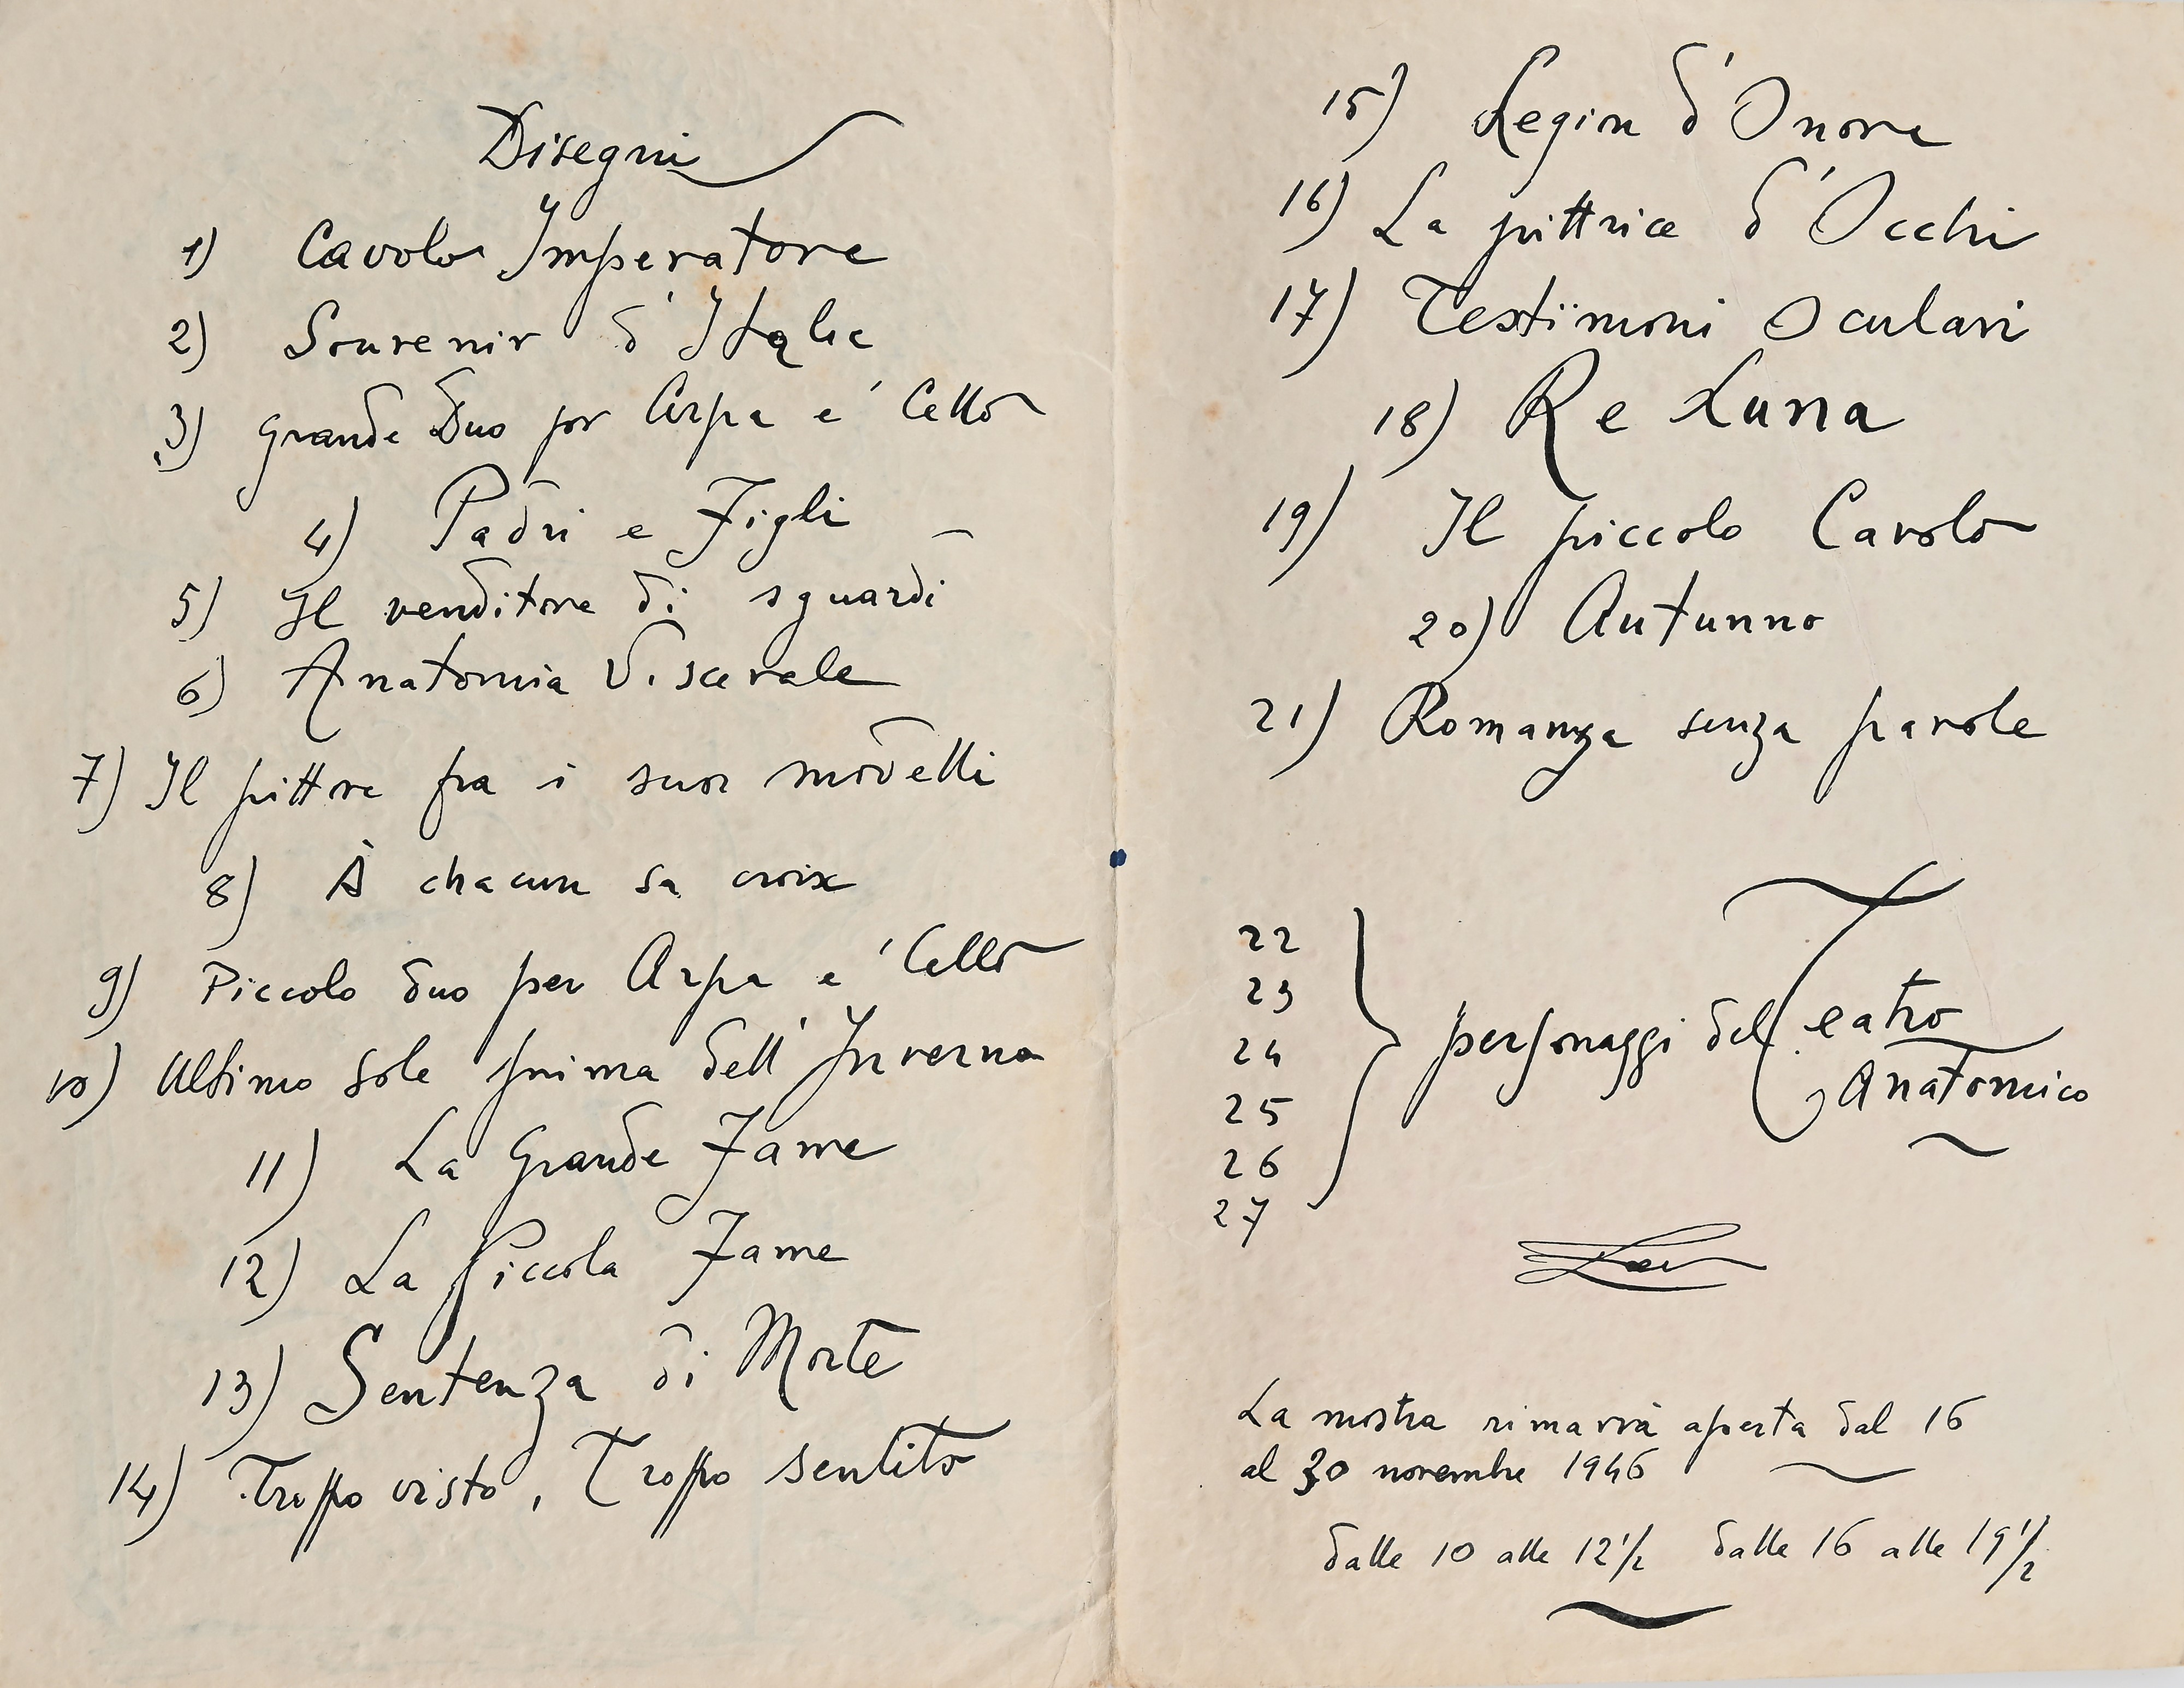 Disegni
1) Cavolo Imperatore
2) Souvenir d'Italie
3) Grande Duo per Arpa e 'Cello
4) Padri e Figli
5) Il venditore di sguardi
6) Anatomia Viscerale
7) Il pittore fra i suoi modelli
8) À chacun sa croix
9) Piccolo duo per Arpa e 'Cello
10) Ultimo sole prima dell'Inverno
11) La Grande Fame
12) La Piccola Fame
13) Sentenza di Morte
14) Troppo visto, Troppo sentito
15) Legion d'Onore
16) La pittrice d'Occhi
17) Testimoni Oculari
18) Re Luna
19) Il piccolo Cavolo
20) Autunno
21) Romanza senza parole
22
23
24
25
26
27
personaggi del Teatro
Anatomico
La mostra rimarrà aperta dal 16
al 30 novembre 1946
dalle 10 alle 12 1/2 dalle 16 alle 19 1/2